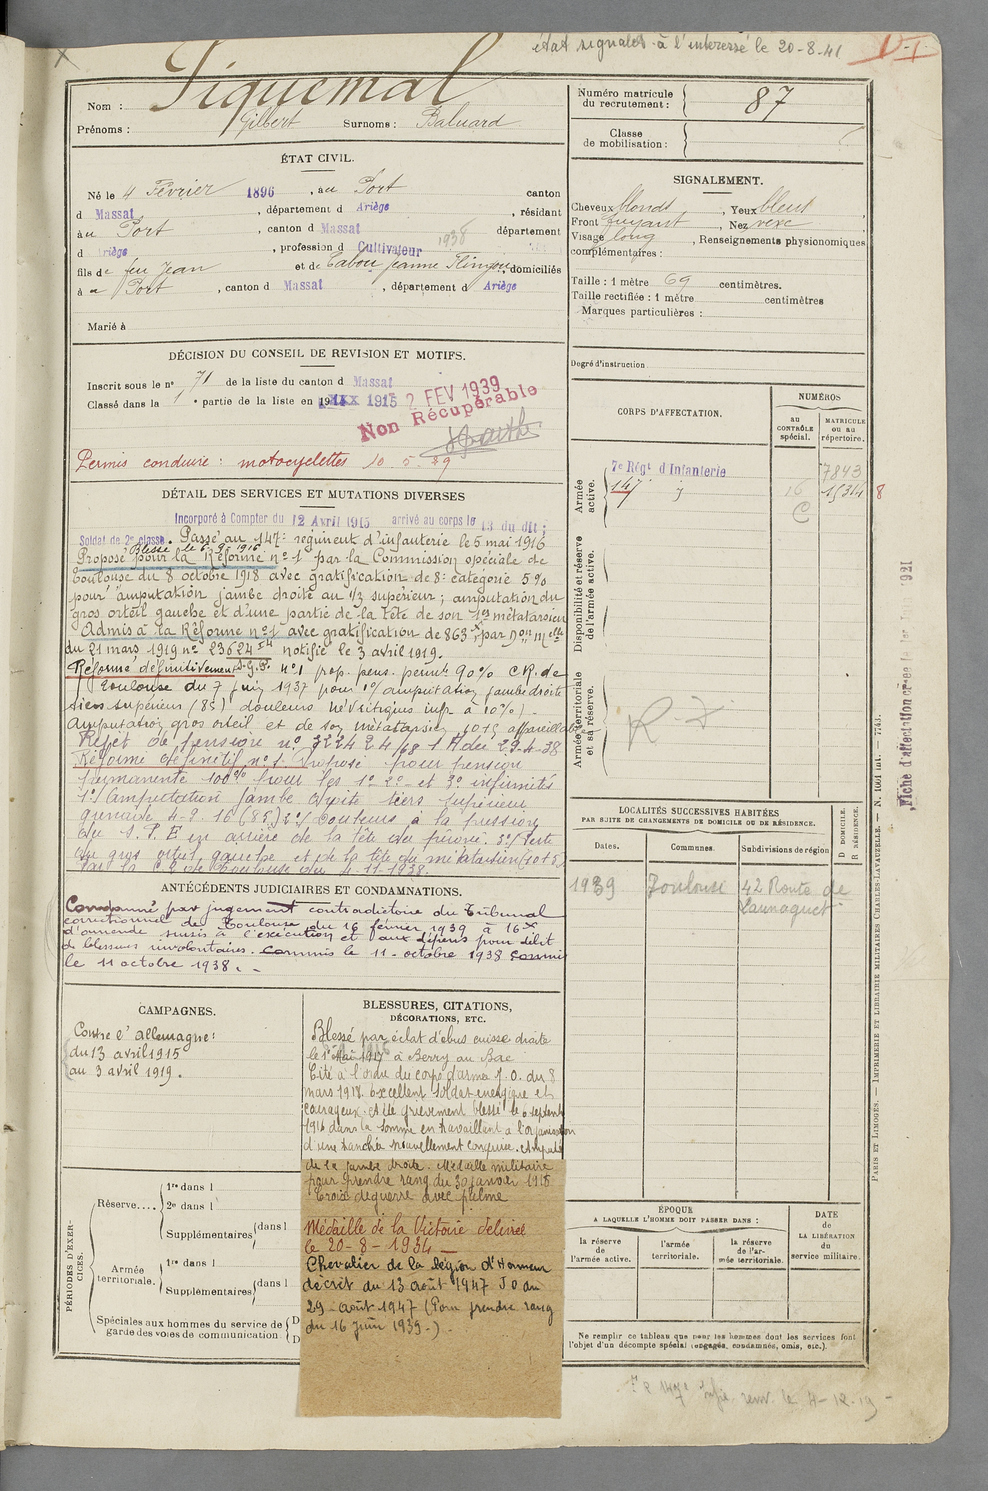 état signalét. à l'interessé le 20-8-41
Nom : Piquemal
Prénoms : Gilbert Surnoms : Baluard
Numéro matricule du recrutement : 87
Classe de mobilisation :
ÉTAT CIVIL.
Né le 4 Février 1896, à u Port canton
d Massat, département d Ariège, résidant
à u Port, canton d Massat département
d Ariège, profession d Cultivateur 1938
fils de feu Jean et de Cabou Jeanne, domiciliés
à u Port, canton d Massat, département d Ariège
Marié à
SIGNALEMENT.
Cheveux blonds, Yeux bleus
Front fuyant, Nez vexe
Visage long, Renseignements physionomiques
complémentaires :
Taille : 1 mètre 69 centimètres.
Taille rectifiée : 1 mètre centimètres
Marques particulières :
Degré d'instruction
DÉCISION DU CONSEIL DE REVISION ET MOTIFS.
Inscrit sous le n° 71 de la liste du canton d Massat
Classé dans la 1e partie de la liste en 1915
2 FEV 1939
Non Récupérable
Permis conduire : motocyclettes 10.5.29
DÉTAIL DES SERVICES ET MUTATIONS DIVERSES
Incorporé à Compter du 12 Avril 1915 arrivé au corps le 13 du dit ;
Soldat de 2e classe. Passé au 147e régiment d'infanterie le 5 mai 1916
Blessé le 6.9.1916
Proposé pour la Réforme n° 1 par la Commission spéciale de
Toulouse du 8 octobre 1918 avec gratification de 8e catégorie 5%
pour "amputation jambe droite au 1/3 supérieur ; amputation du
gros orteil gauche et d'une partie de la tête de son 1er métatarsien
Admis à la Réforme n° 1 avec gratification de 863 par Don Melle
du 21 mars 1919 n° 23624 notifié le 3 avril 1919.
Réformé définitivement n° 1 prop. pens. permte 90% C.R. de
Toulouse du 7 Juin 1937 pour 1°/ amputation jambe droite
tiers supérieur (85) douleurs névritiques (inf. à 10%) -
Amputation gros orteil et de son métatarsien 10+5 appareillable
Rejet de pension n° 322424/68 1 A du 29-4-38
Réforme définitif n° 1 Proposé pour pension
permanente 100% pour les 1° 2° et 3° infirmités
1°/ Amputation jambe droite tiers supérieur
grenade 4-9-16 (85) 2°/ Douleurs à la pression
du S.P.E en arrière de la tête du péroné. 3°/ Perte
du gros orteil gauche et de la tête du métatarsien (10+5)
par la C.R de Toulouse du 4-11-1938.
CORPS D'AFFECTATION.
NUMÉROS
AU CONTRÔLE spécial.
MATRICULE ou au répertoire.
Armée active.
7e Régt d'Infanterie 7843
147 " 16 15314 8
C
Disponibilité et réserve de l'armée active.
Armée territoriale et sa réserve.
Fiche d'affectation créée le 1er 1921
LOCALITÉS SUCCESSIVES HABITÉES
PAR SUITE DE CHANGEMENTS DE DOMICILE OU DE RÉSIDENCE.
Dates. Communes. Subdivisions de région D DOMICILE. R RÉSIDENCE.
1939 Toulouse 42 Route de
Launaguet
ANTÉCÉDENTS JUDICIAIRES ET CONDAMNATIONS.
Condamné par jugement contradictoire du Tribunal
correctionnel de Toulouse du 16 février 1939 à 16x
d'amende sursis à l'exécution et aux dépens pour délit
de blessures involontaires. commis le 11-octobre 1938 commis
le 11 octobre 1938. -
CAMPAGNES.
Contre l'Allemagne :
du 13 avril 1915
au 3 avril 1919.
BLESSURES, CITATIONS,
DÉCORATIONS, ETC.
Blessé par éclat d'obus cuisse droite
le 1er Mai 1917 à Berry au Bac
Cité à l'ordre du corps d'armée J.O. du 8
mars 1918. Excellent soldat energique et
courageux. A été grièvement blessé le 6 septembre
1916 dans la Somme en travaillant à l'organisation
d'une tranchée nouvellement conquise. Amputé
de la jambe droite. Médaille militaire
pour prendre rang du 30 janvier 1918
Croix de guerre avec palme
Médaille de la Victoire délivrée
le 20-8-1934 -
Chevalier de la légion d'Honneur
décret du 13 août 1947 J O du
29-août-1947 (Pour prendre rang
du 16 Juin 1939.-)
PÉRIODES D'EXERCICES.
Réserve.... 1re dans l
2e dans l
Supplémentaires dans l
Armée territoriale. 1re dans l
Supplémentaires dans l
Spéciales aux hommes du service de
garde des voies de communication. D
D
ÉPOQUE
A LAQUELLE L'HOMME DOIT PASSER DANS :
la réserve de l'armée active.
l'armée territoriale.
la réserve de l'armée territoriale.
DATE de LA LIBÉRATION du service militaire.
Ne remplir ce tableau que pour les hommes dont les services font
l'objet d'un décompte spécial (engagés, condamnés, omis, etc.).
PARIS ET LIMOGES. — IMPRIMERIE ET LIBRAIRIE MILITAIRES CHARLES-LAVAUZELLE. — N. 1001 int. — 7743.